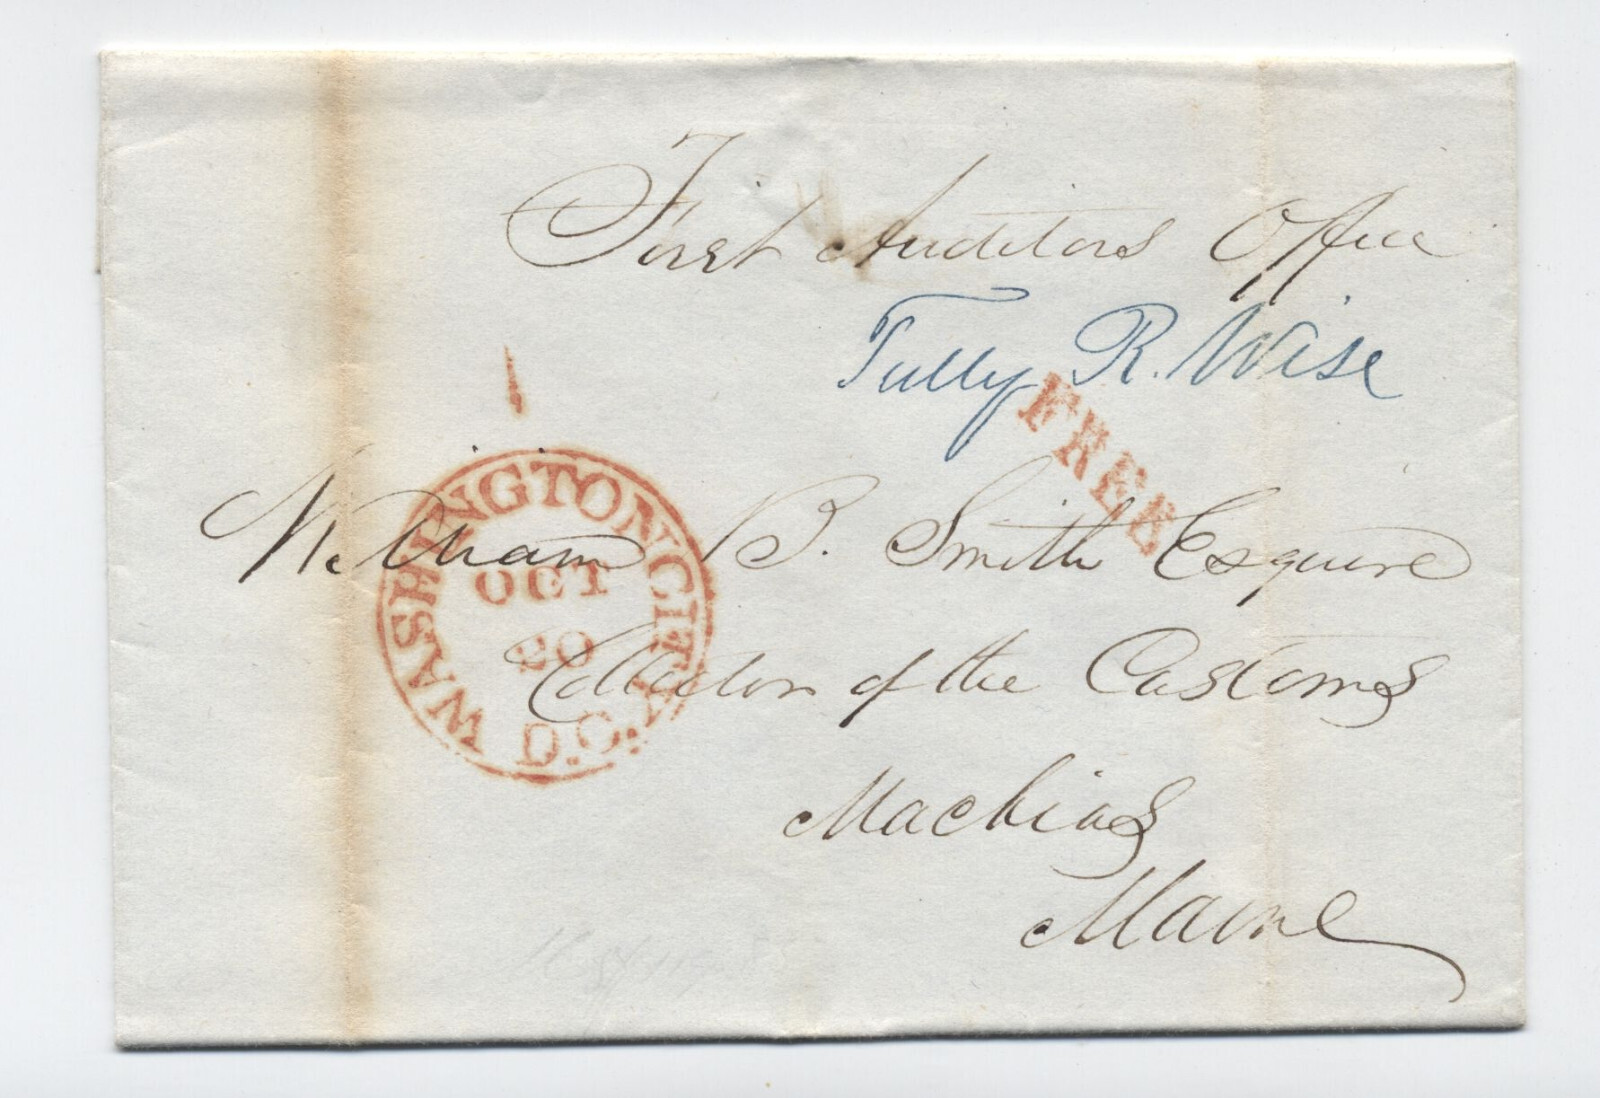 First Auditors Office
Tully R. Wise
FREE
WASHINGTON CITY D.C.
OCT
20
William B. Smith Esquire
Collector of the Customs
Machias
Maine